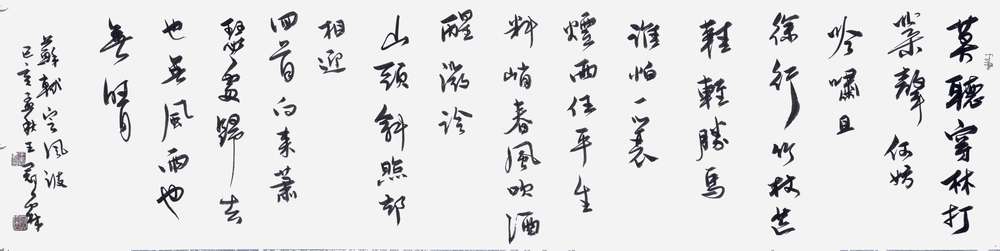 莫聽穿林打
葉聲何妨
吟嘯且
徐行竹杖芒
鞋輕勝馬
誰怕一蓑
煙雨任平生
料峭春風吹酒
醒微冷
山頭斜照却
相迎
回首向来蕭
瑟處歸去
也無風雨也
無晴
蘇軾定風波
己亥秋王